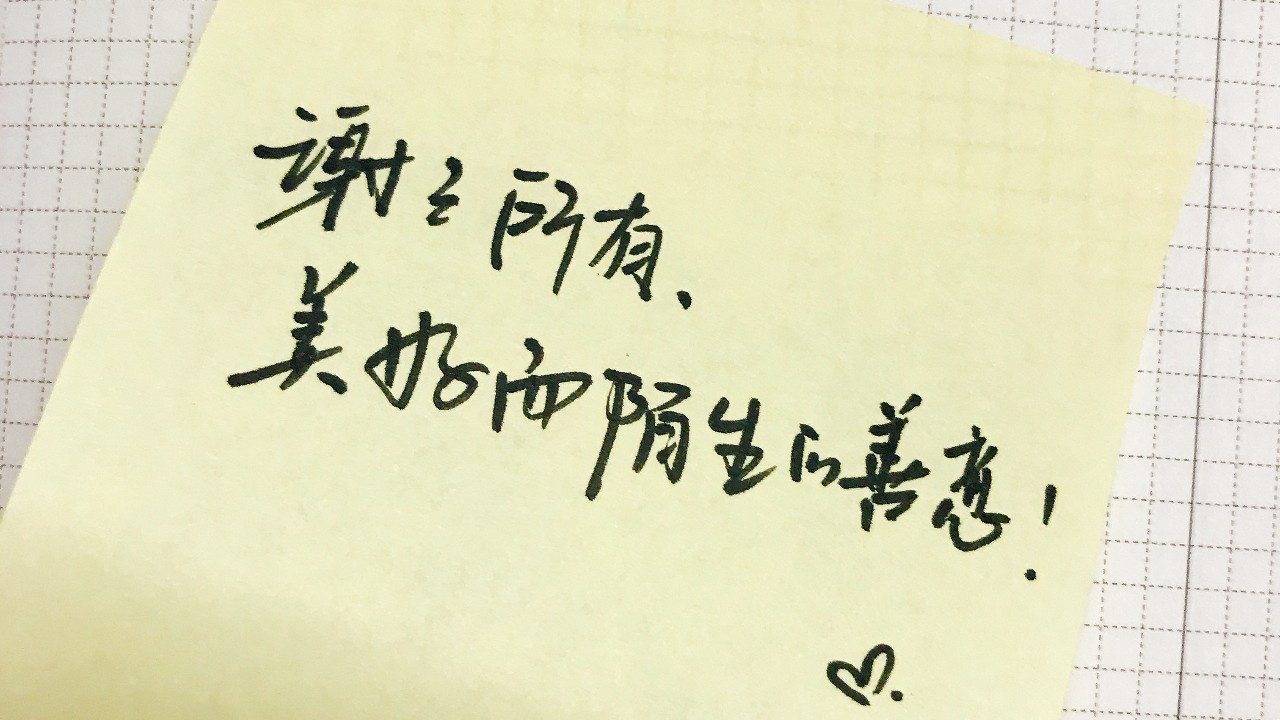 謝々所有、
美好而陌生的善意！
♡.